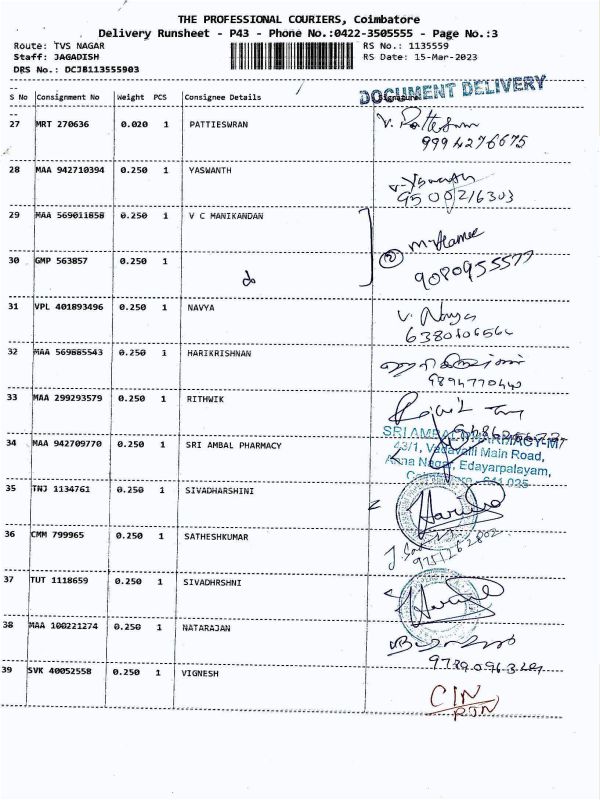 THE PROFESSIONAL COURIERS, Coimbatore
Delivery Runsheet - P43 - Phone No.:0422-3505555 - Page No.:3
Route: TVS NAGAR
RS No.: 1135559
Staff: JAGADISH
RS Date: 15-Mar-2023
DRS No.: DCJB113555903
DOCUMENT DELIVERY
S No Consignment No Weight PCS Consignee Details
27 MRT 270636 0.020 1 PATTIESWRAN
9994276675
28 MAA 942710394 0.250 1 YASWANTH
9500216303
29 MAA 569011858 0.250 1 V C MANIKANDAN
30 GMP 563857 0.250 1
do
9080955577
31 VPL 401893496 0.250 1 NAVYA
V. Navya
32 MAA 569885543 0.250 1 HARIKRISHNAN
9894770440
33 MAA 299293579 0.250 1 RITHWIK
34 MAA 942709770 0.250 1 SRI AMBAL PHARMACY
SRI AMBAL PHARMACY
43/1, Vadavalli Main Road,
Anna Nagar, Edayarpalayam,
35 TNJ 1134761 0.250 1 SIVADHARSHINI
36 CMM 799965 0.250 1 SATHESHKUMAR
9751262802
37 TUT 1118659 0.250 1 SIVADHRSHNI
38 MAA 100221274 0.250 1 NATARAJAN
39 SVK 40052558 0.250 1 VIGNESH
CIN
RTN